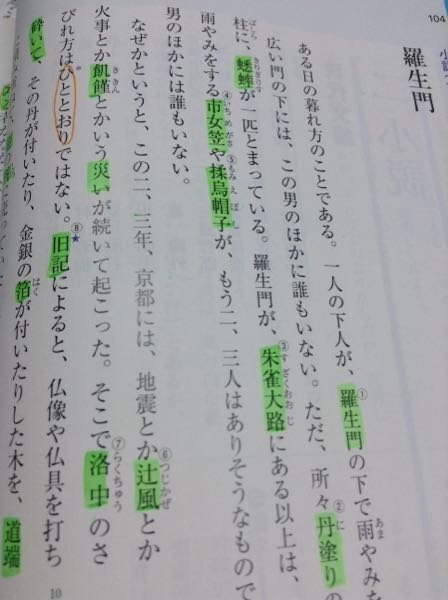 104
羅生門
ある日の暮れ方のことである。一人の下人が、①羅生門の下で雨やみを
広い門の下には、この男のほかに誰もいない。ただ、所々②丹塗りの
柱に、蟋蟀が一匹とまっている。羅生門が、③朱雀大路にある以上は、
雨やみをする④市女笠や⑤揉烏帽子が、もう二、三人はありそうなもので
男のほかには誰もいない。
なぜかというと、この二、三年、京都には、地震とか⑥辻風とか
火事とか飢饉とかいう災いが続いて起こった。そこで⑦洛中のさ
びれ方はひととおりではない。⑧旧記によると、仏像や仏具を打ち
砕いて、その丹が付いたり、金銀の箔が付いたりした木を、道端
10